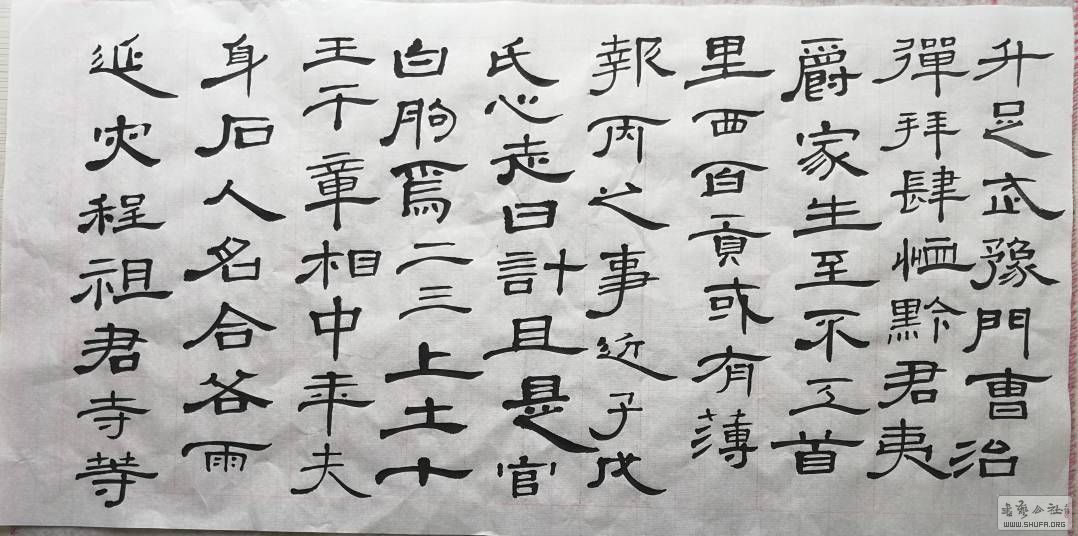 升是武豫門曹治
彈拜肆恤黔君夷
爵家生至不工首
里西百貢或有薄
報丙之事近子戊
氏心走曰計且是官
白朐焉二三上土十
王干章相中年夫
身石人名合谷雨
延灾程祖君寺等
WWW.SHUFA.ORG